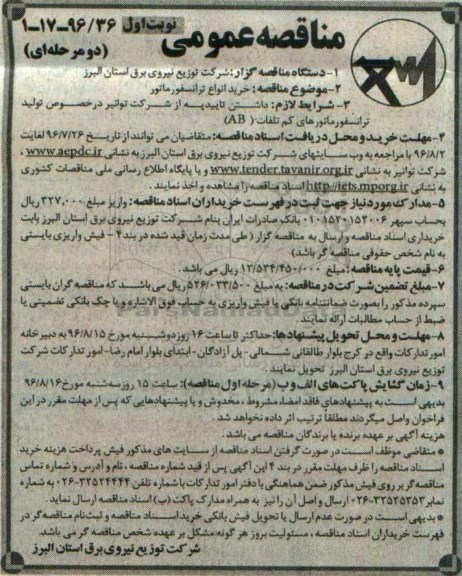 نوبت اول
۱-۱۷-۹۶/۳۶
(دو مرحله‌ای)
مناقصه عمومی
۱-دستگاه مناقصه گزار: شرکت توزیع نیروی برق استان البرز
۲-موضوع مناقصه: خرید انواع ترانسفورماتور
۳- شرایط لازم: داشتن تاییدیه از شرکت توانیر درخصوص تولید
ترانسفورماتورهای کم تلفات ( AB)
۴-مهلت خرید و محل دریافت اسناد مناقصه: متقاضیان می توانند از تاریخ ۹۶/۷/۲۶ لغایت
۹۶/۸/۲ با مراجعه به وب سایتهای شرکت توزیع نیروی برق استان البرز به نشانی www.aepdc.ir ،
شرکت توانیر به نشانی www.tender.tavanir.org.ir و یا پایگاه اطلاع رسانی ملی مناقصات کشوری
به نشانی http://iets.mporg.ir اسناد مناقصه را مشاهده و اخذ نمایند .
۵-مدارک مورد نیاز جهت ثبت در فهرست خریداران اسناد مناقصه: واریز مبلغ ۳۲۷,۰۰۰ ریال
بحساب سپهر ۰۱۰۱۵۲۰۱۵۲۰۰۶ بانک صادرات ایران بنام شرکت توزیع نیروی برق استان البرز بابت
خریداری اسناد مناقصه و ارسال به مناقصه گزار ( طی مدت زمان قید شده در بند ۴ - فیش واریزی بایستی
به نام شخص حقوقی مناقصه گر باشد)
۶-قیمت پایه مناقصه: مبلغ ۱۲/۵۳۴/۴۵۰/۰۰۰ ریال می باشد.
۷-مبلغ تضمین شرکت در مناقصه: به مبلغ ۵۲۶/۰۳۳/۵۰۰ ریال می باشد که مناقصه گران بایستی
سپرده مذکور را بصورت ضمانتنامه بانکی یا فیش واریزی به حساب فوق الاشاره و یا چک بانکی تضمینی یا
ضبط از حساب مطالبات ارائه نمایند .
۸-مهلت و محل تحویل پیشنهادها: حداکثر تا ساعت ۱۶ روز دوشنبه مورخ ۹۶/۸/۱۵ به دبیرخانه
امور تدارکات واقع در کرج بلوار طالقانی شمالی- پل آزادگان - ابتدای بلوار امام رضا- امور تدارکات شرکت
توزیع نیروی برق استان البرز تحویل نمایند .
۹-زمان گشایش پاکت های الف و ب (مرحله اول مناقصه): ساعت ۱۵ روز سه شنبه مورخ ۹۶/۸/۱۶
بدیهی است به پیشنهادهای فاقد امضا، مشروط ، مخدوش و یا پیشنهادهایی که پس از مهلت مقرر در این
فراخوان واصل میگردند مطلقاً ترتیب اثر داده نخواهد شد .
هزینه آگهی بر عهده برنده یا برندگان مناقصه می باشد.
* متقاضی موظف است در صورت گرفتن اسناد مناقصه از سایت های مذکور فیش پرداخت هزینه خرید
اسناد مناقصه را ظرف مهلت مقرر در بند ۴ این آگهی پس از قید شماره مناقصه ، نام و آدرس و شماره تماس
مناقصه گر بر روی فیش مذکور ضمن هماهنگی با دفتر امور تدارکات با شماره تلفن ۳۲۵۲۴۴۴۴-۰۲۶ به شماره
نمابر ۳۲۵۲۵۲۵۳-۰۲۶ ارسال و اصل آن را نیز به همراه مدارک پاکت (ب) اسناد مناقصه ارسال نماید.
* بدیهی است در صورت عدم ارسال یا تحویل فیش بانکی خرید اسناد مناقصه و ثبت نام مناقصه گر در
فهرست خریداران اسناد مناقصه ، مسئولیت بروز هر گونه مشکل بر عهده شخص مناقصه گر می باشد.
شرکت توزیع نیروی برق استان البرز